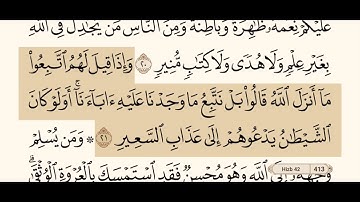 عَلَيْكُمْ نِعَمَهُۥ ظَٰهِرَةً وَبَاطِنَةً وَمِنَ ٱلنَّاسِ مَن يُجَٰدِلُ فِى ٱللَّهِ
بِغَيْرِ عِلْمٍ وَلَا هُدًى وَلَا كِتَٰبٍ مُّنِيرٍ ٢٠ وَإِذَا قِيلَ لَهُمُ ٱتَّبِعُوا۟
مَآ أَنزَلَ ٱللَّهُ قَالُوا۟ بَلْ نَتَّبِعُ مَا وَجَدْنَا عَلَيْهِ ءَابَآءَنَآ ۚ أَوَلَوْ كَانَ
ٱلشَّيْطَٰنُ يَدْعُوهُمْ إِلَىٰ عَذَابِ ٱلسَّعِيرِ ٢١ ۞ وَمَن يُسْلِمْ
وَجْهَهُۥٓ إِلَى ٱللَّهِ وَهُوَ مُحْسِنٌ فَقَدِ ٱسْتَمْسَكَ بِٱلْعُرْوَةِ ٱلْوُثْقَىٰ ۗ
Hizb 42 413